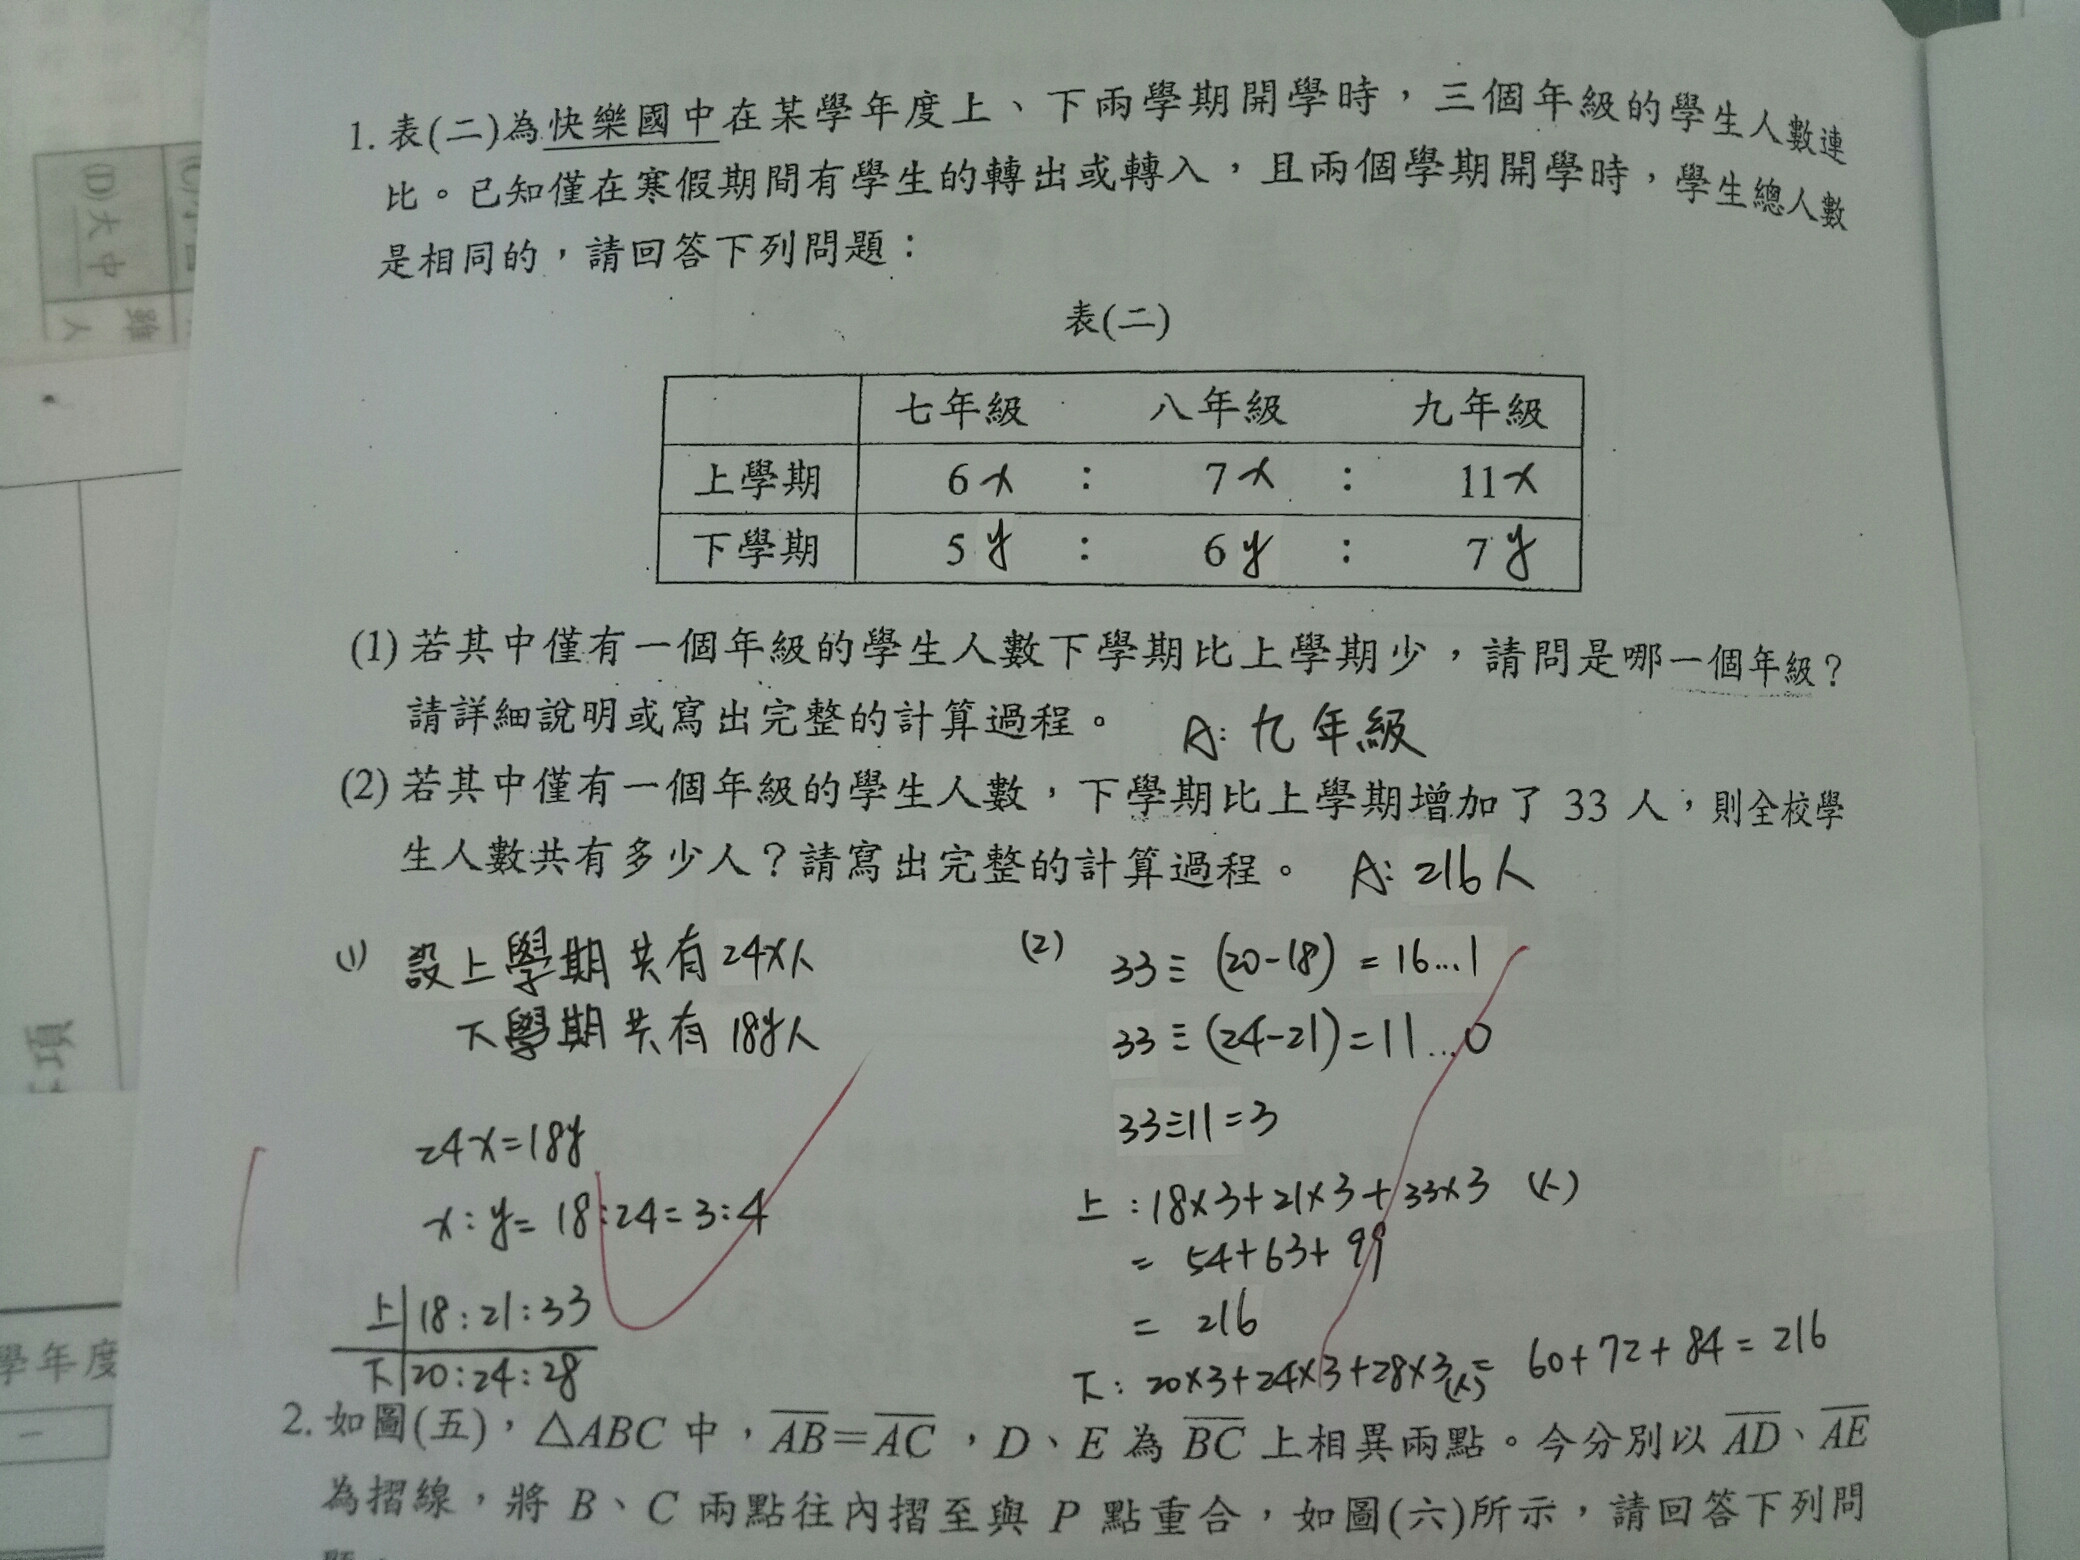 (D)大中
雞
人
項
學年度
一
1. 表(二)為快樂國中在某學年度上、下兩學期開學時，三個年級的學生人數連
比。已知僅在寒假期間有學生的轉出或轉入，且兩個學期開學時，學生總人數
是相同的，請回答下列問題：
表(二)
七年級 八年級 九年級
上學期 6x : 7x : 11x
下學期 5y : 6y : 7y
(1) 若其中僅有一個年級的學生人數下學期比上學期少，請問是哪一個年級？
請詳細說明或寫出完整的計算過程。 A: 九年級
(2) 若其中僅有一個年級的學生人數，下學期比上學期增加了 33 人，則全校學
生人數共有多少人？請寫出完整的計算過程。 A: 216人
(1) 設上學期共有24x人
下學期共有18y人
24x=18y
x:y=18:24=3:4
上 18:21:33
下 20:24:28
(2) 33÷(20-18)=16...1
33÷(24-21)=11...0
33÷11=3
上:18×3+21×3+33×3 (人)
= 54+63+99
= 216
下: 20×3+24×3+28×3(人)= 60+72+84=216
2. 如圖(五)，△ABC 中，AB=AC，D、E 為 BC 上相異兩點。今分別以 AD、AE
為摺線，將 B、C 兩點往內摺至與 P 點重合，如圖(六)所示，請回答下列問